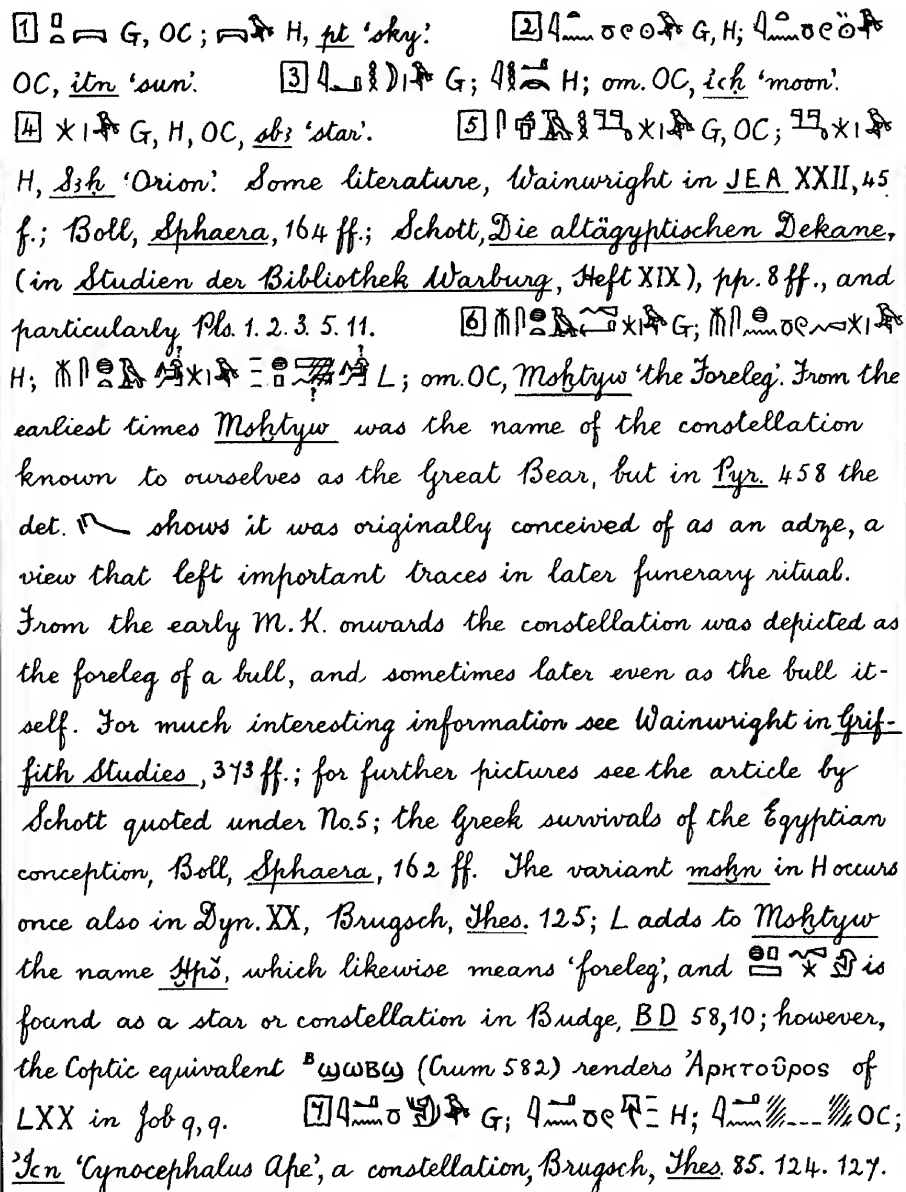 1 G, OC; H, pt ‘sky’. 2 G, H;
OC, itn ‘sun’. 3 G; H; om. OC, iꜥḥ ‘moon’.
4 G, H, OC, sbꜣ ‘star’. 5 G, OC;
H, Sꜣḥ ‘Orion’. Some literature, Wainwright in JEA XXII, 45
f.; Boll, Sphaera, 164 ff.; Schott, Die altägyptischen Dekane,
(in Studien der Bibliothek Warburg, Heft XIX), pp. 8 ff., and
particularly Pls. 1. 2. 3. 5. 11. 6 G;
H; L; om. OC, Msḫtyw ‘the Foreleg’. From the
earliest times Msḫtyw was the name of the constellation
known to ourselves as the Great Bear, but in Pyr. 458 the
det. shows it was originally conceived of as an adze, a
view that left important traces in later funerary ritual.
From the early M.K. onwards the constellation was depicted as
the foreleg of a bull, and sometimes later even as the bull it-
self. For much interesting information see Wainwright in Grif-
fith Studies, 373 ff.; for further pictures see the article by
Schott quoted under No. 5; the Greek survivals of the Egyptian
conception, Boll, Sphaera, 162 ff. The variant msḫn in H occurs
once also in Dyn. XX, Brugsch, Thes. 125; L adds to Msḫtyw
the name Ḫpš, which likewise means ‘foreleg’, and is
found as a star or constellation in Budge, BD 58,10; however,
the Coptic equivalent ᴮϣⲱⲃϣ (Crum 582) renders Ἀρκτοῦρος of
LXX in Job 9, 9. 7 G; H; OC;
ʾIꜥn ‘Cynocephalus Ape’, a constellation, Brugsch, Thes. 85. 124. 127.